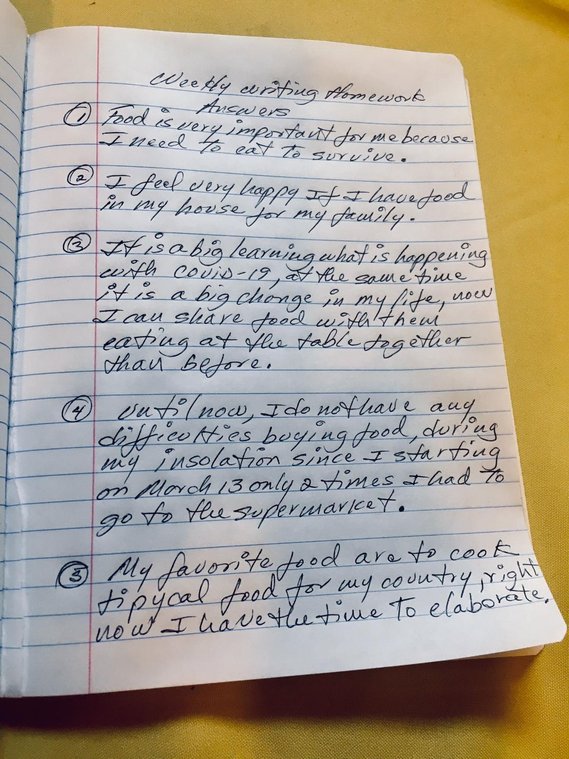 Weekly writing Homework
Answers
① Food is very important for me because
I need to eat to survive.
② I feel very happy If I have food
in my house for my family.
③ It is a big learning what is happening
with covid-19, at the same time
it is a big change in my life, now
I can share food with them
eating at the table together
than before.
④ until now, I do not have any
difficulties buying food, during
my insolation since I starting
on March 13 only 2 times I had to
go to the supermarket.
⑤ My favorite food are to cook
tipycal food for my country, right
now I have the time to elaborate.